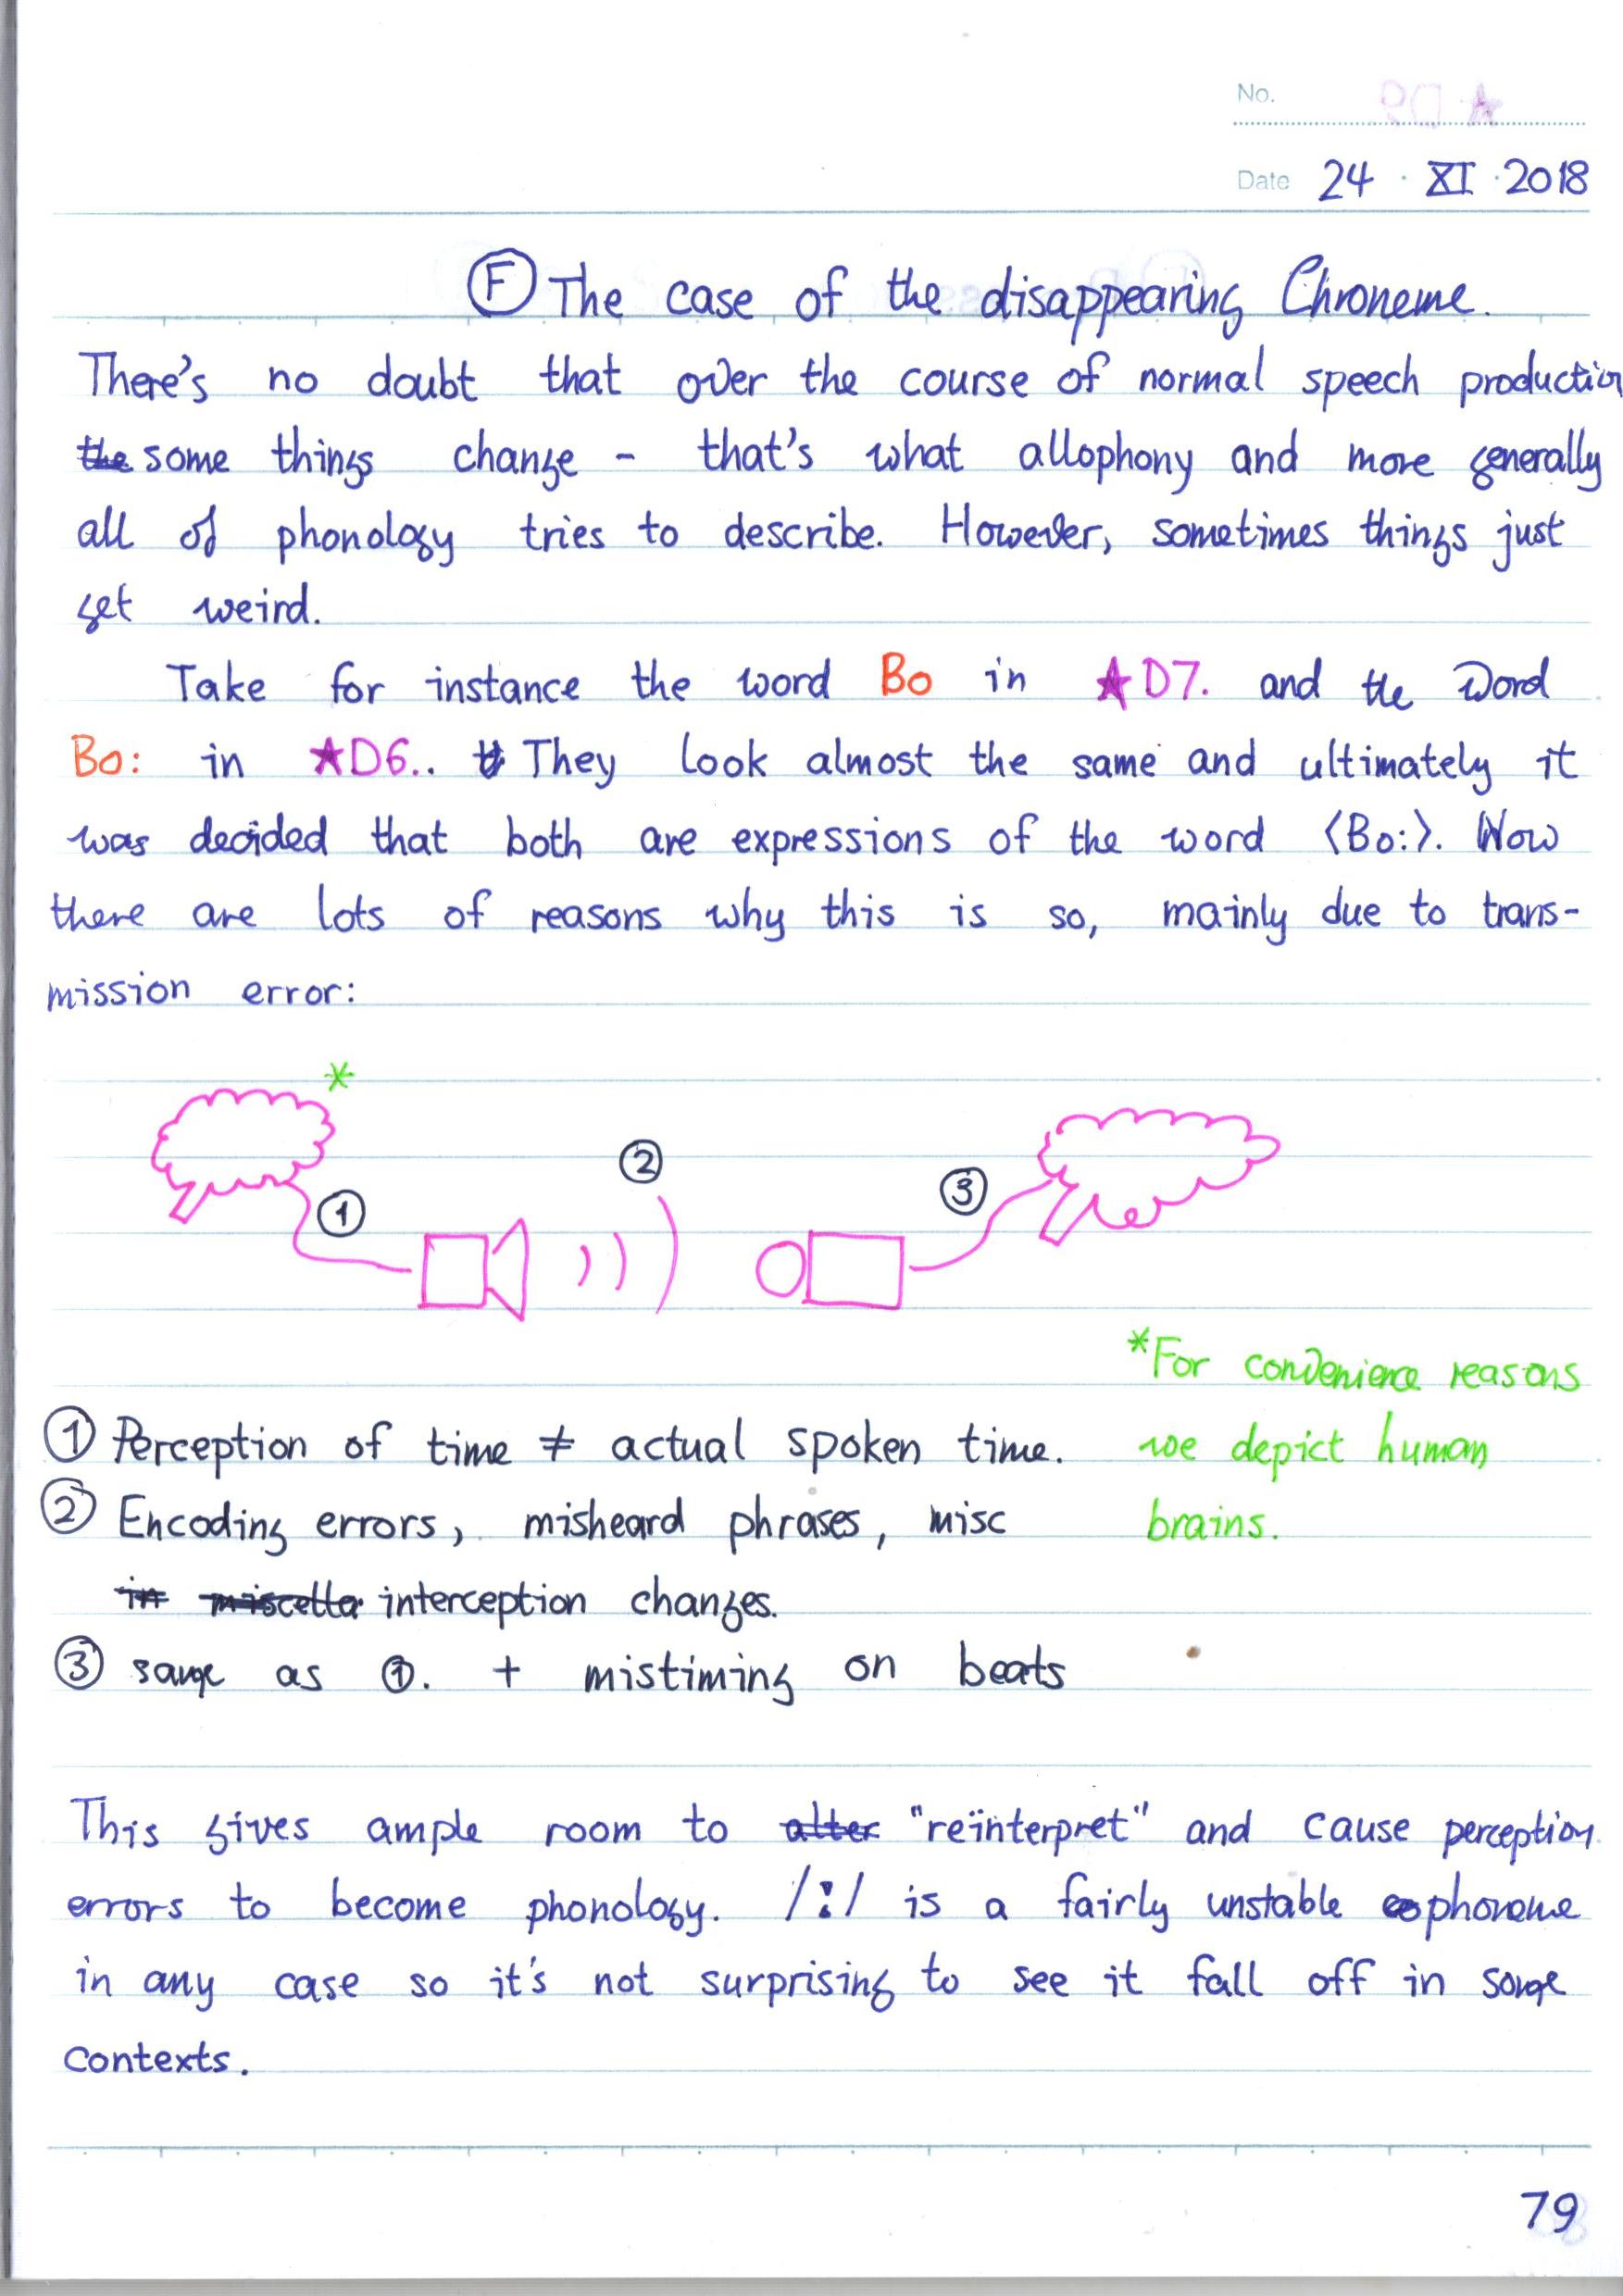 No.
Date 24 · XI · 2018
Ⓕ The case of the disappearing Chroneme.
There's no doubt that over the course of normal speech production
the some things change - that's what allophony and more generally
all of phonology tries to describe. However, sometimes things just
get weird.
Take for instance the word Bo in ★D7. and the Word
Bo: in ★D6.. They look almost the same and ultimately it
was decided that both are expressions of the word ⟨Bo:⟩. Now
there are lots of reasons why this is so, mainly due to trans-
mission error:
*
②
③
①
*For convenience reasons
① Perception of time ≠ actual spoken time.
we depict human
② Encoding errors, misheard phrases, misc
brains.
in miscella interception changes.
③ same as ①. + mistiming on beats
This gives ample room to alter "reïnterpret" and cause perception
errors to become phonology. /ː/ is a fairly unstable phoneme
in any case so it's not surprising to see it fall off in some
contexts.
79